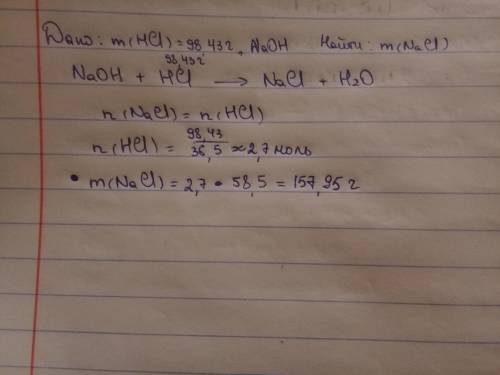 Дано: m(HCl) = 98,43 г, NaOH Найти: m(NaCl)
98,43 г
NaOH + HCl → NaCl + H2O
n(NaCl) = n(HCl)
n(HCl) = 98,43 / 36,5 ≈ 2,7 моль
• m(NaCl) = 2,7 • 58,5 = 157,95 г